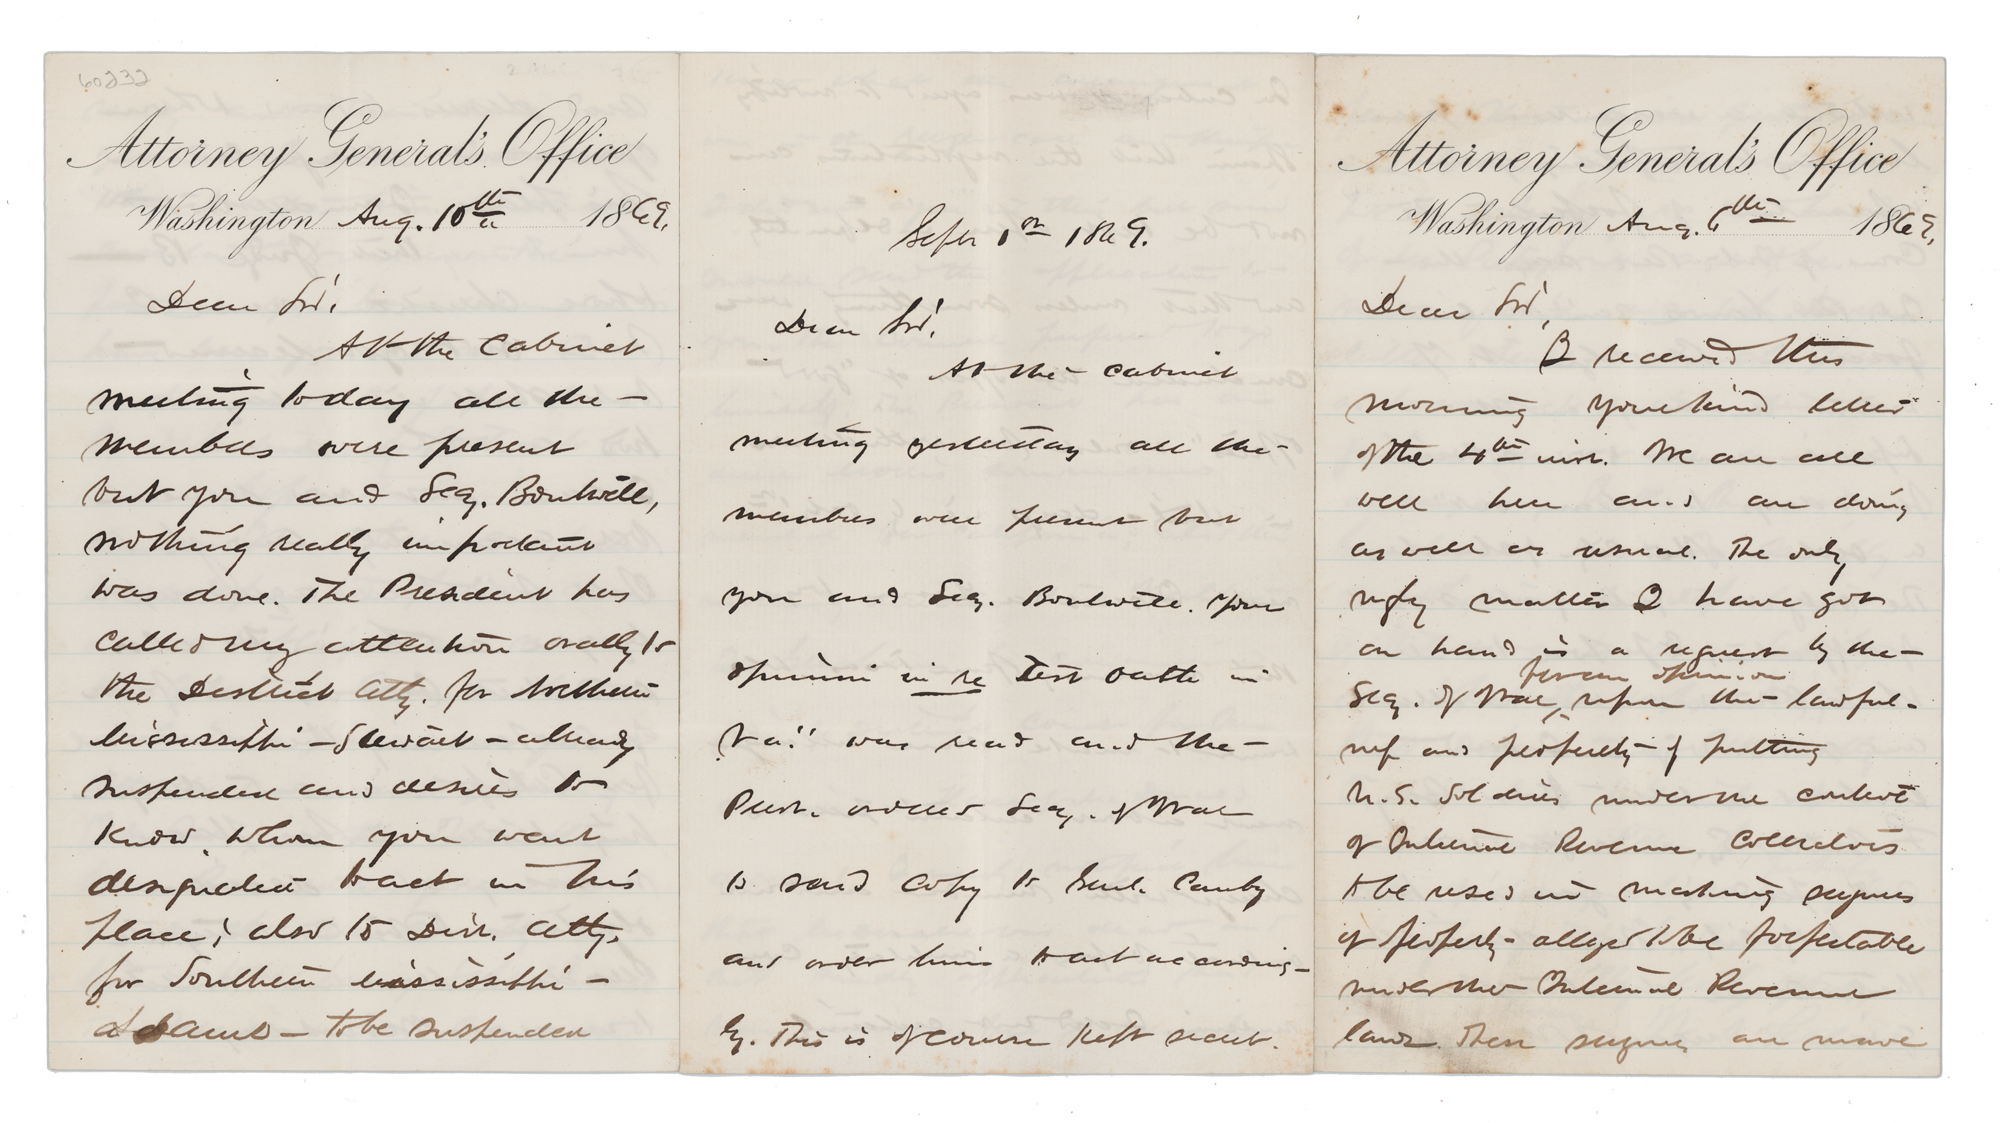 60232
Attorney General's Office
Washington Aug. 10th 1869.
Dear Sir!
At the Cabinet
meeting today all the
members were present
but you and Secy. Boutwell,
nothing really important
was done. The President has
called my attention orally to
the District Atty. for Northern
Mississippi – Stewart – already
suspended and desires to
know whom you want
designated to act in his
place; also to Dist. Atty.
for Southern Mississippi –
Adams – to be suspended
Sepr 1st 1869.
Dear Sir!
At the Cabinet
meeting yesterday all the
members were present but
you and Secy. Boutwell. Your
opinion in re Test Oath in
Va." was read and the
Prest. ordered Secy. of War
to send copy to Genl. Canby
and order him to act according-
ly. This is of course kept secret.
Attorney General's Office
Washington Aug. 6th 1869.
Dear Sir,
I received this
morning your kind letter
of the 4th inst. We are all
well here and are doing
as well as usual. The only
ugly matter I have got
on hand is a request by the
for an opinion
Secy. of War, upon the lawful-
ness and propriety of putting
U.S. Soldiers under the control
of Internal Revenue Collectors
to be used in making seizures
of property alleged to be forfeitable
under the Internal Revenue
laws. These seizures are made